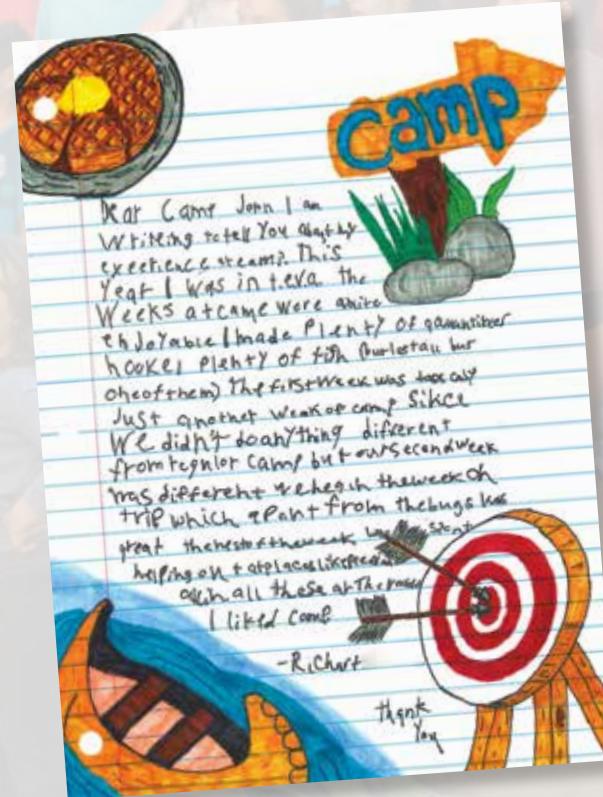 camp
Dear Camp John I am
writeing to tell You about my
experience at camp. This
Year I was in teva. The
Weeks at camp were quite
enJoYable I made PlentY of
hooked PlentY of fish (but lost all but
one of them) The first Week was
Just another Week of camp Since
We didn't do anything different
from regulor Camp but our second week
was different we began the week on
trip which apart from the bugs was
great the rest of the week was spent
helping out at places like
all in all these are The
I liked Camp
-Richart
thank
You